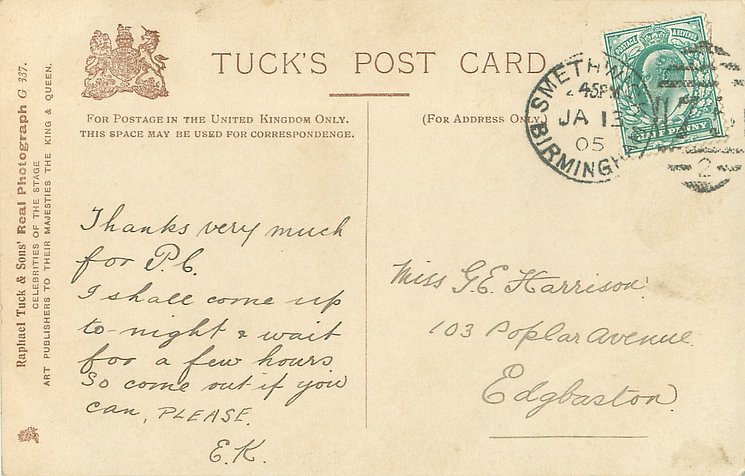 TUCK'S POST CARD
FOR POSTAGE IN THE UNITED KINGDOM ONLY.
THIS SPACE MAY BE USED FOR CORRESPONDENCE.
(FOR ADDRESS ONLY.)
Raphael Tuck & Sons' Real Photograph G 337.
CELEBRITIES OF THE STAGE
ART PUBLISHERS TO THEIR MAJESTIES THE KING & QUEEN.
SMETHWICK
2 45PM
JA 13
05
BIRMINGHAM
POSTAGE & REVENUE
HALFPENNY
2
Thanks very much
for P.C.
I shall come up
to-night & wait
for a few hours
So come out if you
can, PLEASE.
E.K.
Miss G.E. Harrison
103 Poplar Avenue
Edgbaston